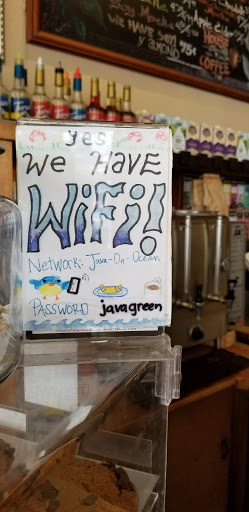 WE HAVE SOY
& ALMOND 75¢
HOUSE
COFFEE
yes
We HAVE
WiFi!
Network: Java-On-Ocean
PASSWORD javagreen